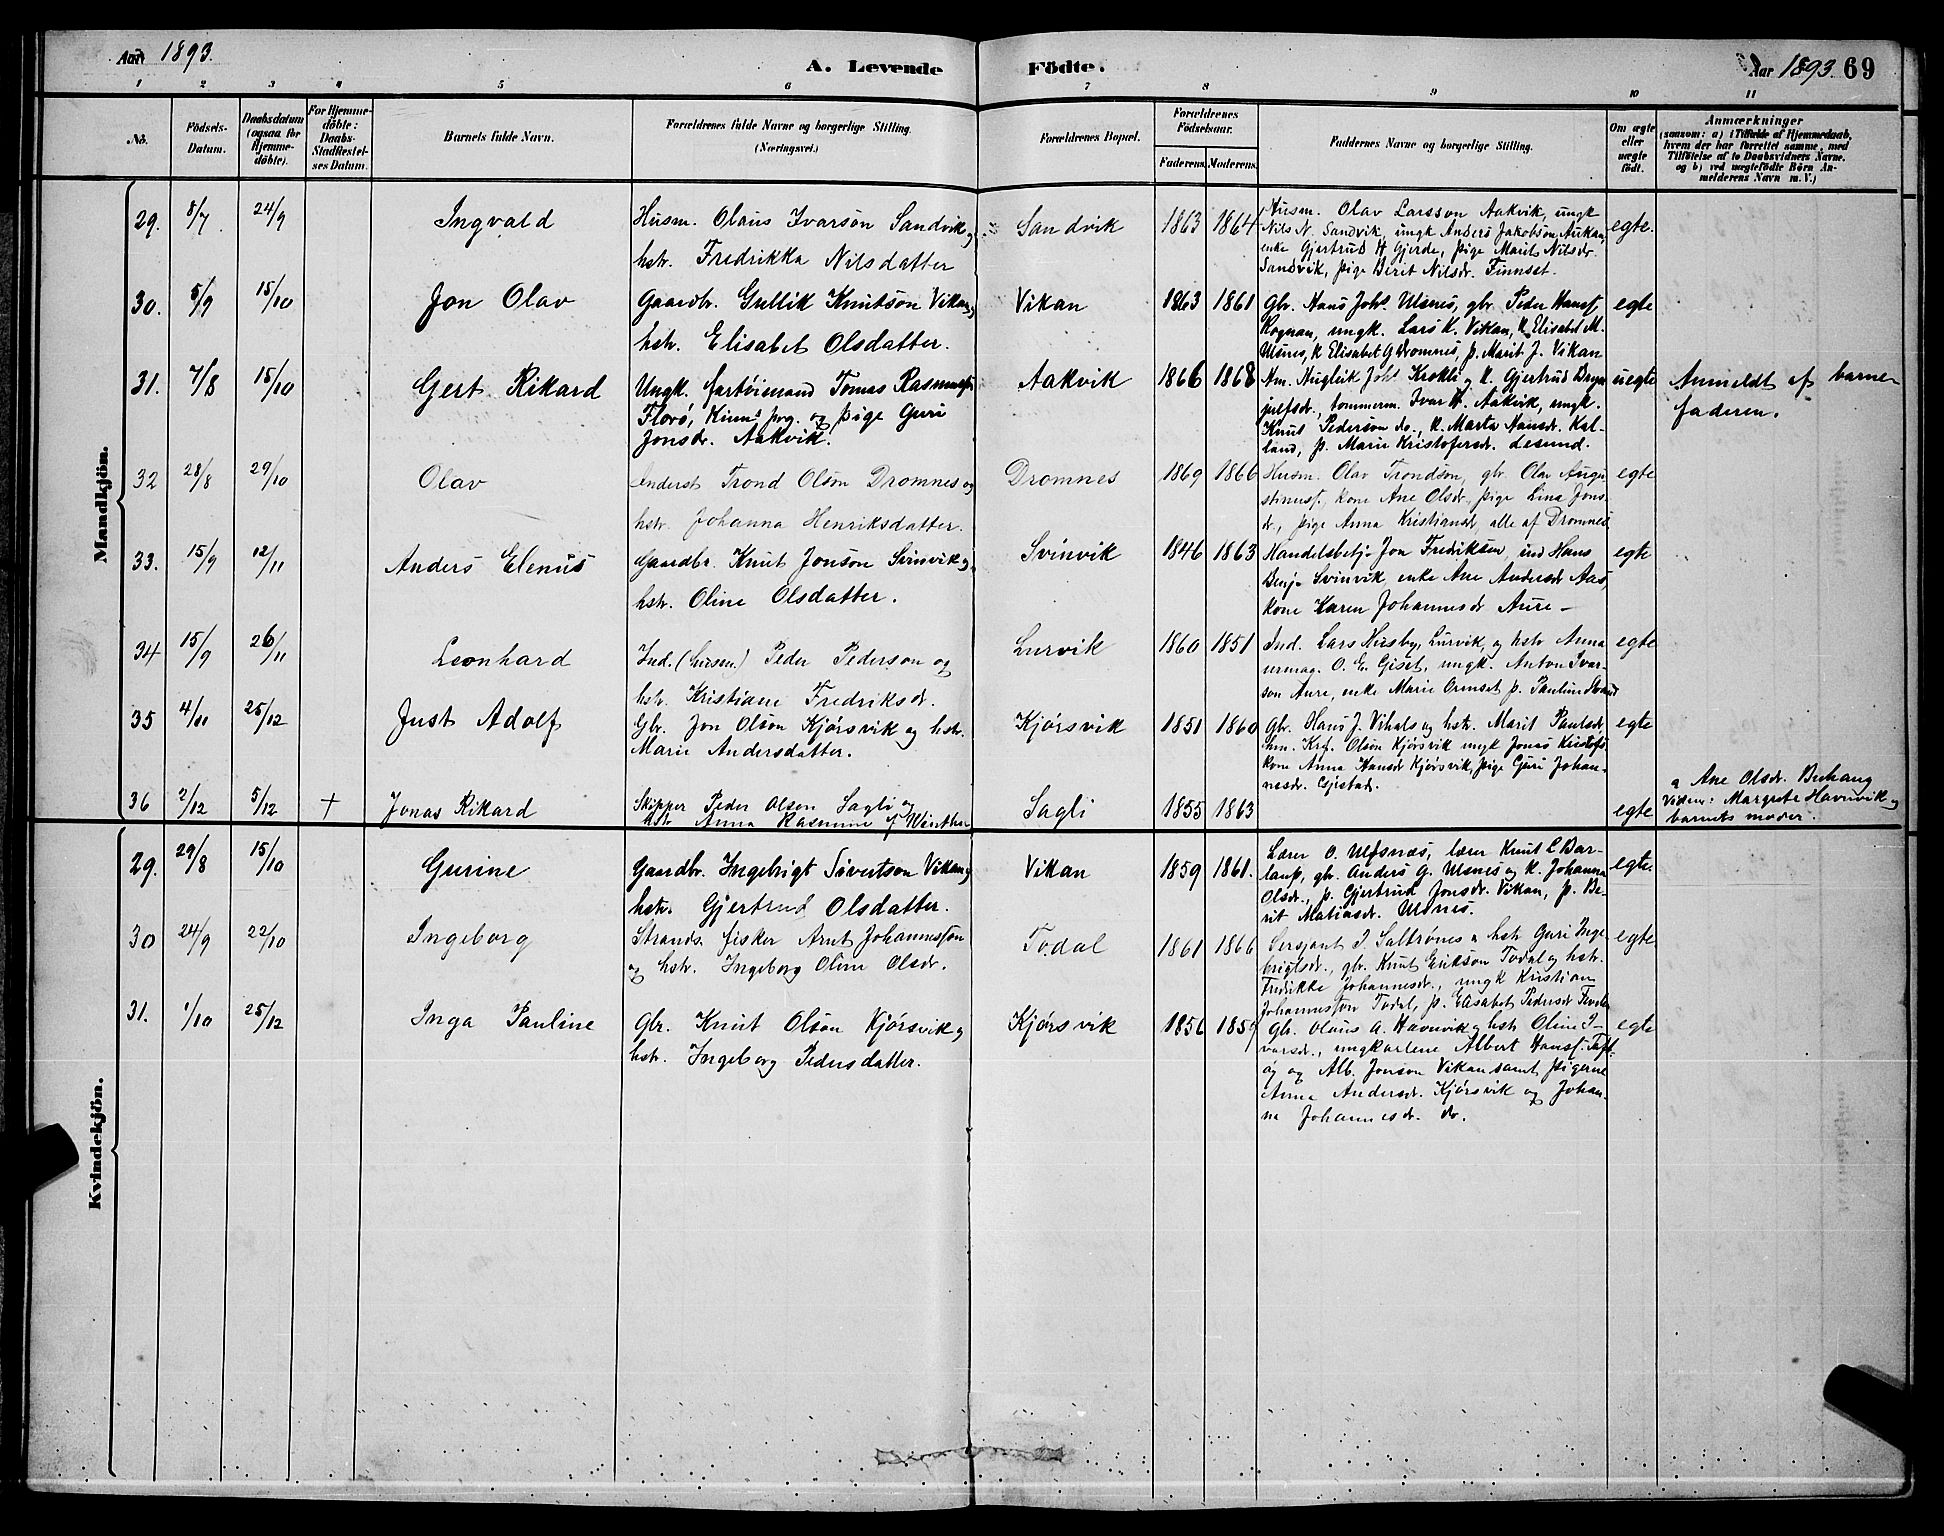 Aar 1893.
A. Levende Födte.
Aar 1893. 69
1 2 3 4 5 6 7 8 9 10 11
No.
Födsels-Datum.
Daabsdatum (ogsaa for Hjemme-döbte).
For Hjemme-döbte: Daabs-Stadfæstel-ses Datum.
Barnets fulde Navn.
Forældrenes fulde Navne og borgerlige Stilling.
(Næringsvei.)
Forældrenes Bopæl.
Forældrenes Födselsaar.
Faderens. Moderens.
Faddernes Navne og borgerlige Stilling.
Om ægte eller uægte födt.
Anmærkninger
(saasom: a) i Tilfælde af Hjemmedaab,
hvem der har forrettet samme, med
Tilföielse af to Daabsvidners Navne.
og b) ved uægtefödte Börn An-
melderens Navn m. V.)
Mandkjön.
29. 8/7 24/9 Ingvald
Husm. Olaus Ivarson Sandvik og
hstr. Fredrikka Nilsdatter
Sandvik 1863 1864
Husm. Olav Larsson Aakvik, ungk.
Nils N. Sandvik, ungk Anders Jakobson Aukan,
enke Gjertrud H Gjerde, pige Marit Nilsdr.
Sandvik, pige Beret Nilsdr. Finnset.
egte.
30. 5/9 15/10 Jon Olav
Gaardbr. Gullik Knutson Vikan og
hstr. Elisabet Olsdatter.
Vikan 1863 1861
Gbr. Hans Johs Ulsnes, gbr. Peder Hansf.
Rognan, ungk. Lars K. Vikan, K Elisabet M.
Ulsnes, K Elisabet G Dromnes, p. Marit J. Vikan
egte
31. 7/8 15/10 Gert Rikard
Ungk. fartöimand Tomas Rasmussen
Florö, Kinns prg. og pige Guri
Jonsdr. Aakvik.
Aakvik 1866 1868
Nm. Augleik Johs Krokli og K. Gjertrud Bryn
julfsdr., tommerm. Ivar H. Aakvik, ungk.
Knut Pederson do., K. Marta Hansdr. Kal-
land, p. Marie Kristofersdr. Lesund.
uegte
Anmeldt af barne-
faderen.
32 28/8 29/10 Olav
Inderst Trond Olson Dromnes og
hstr. Johanna Henriksdatter.
Dromnes 1869 1866
Husm. Olav Trondson, gbr. Olav Augu
stinusf., kone Ane Olsdr., pige Lina Jons
dr., pige Anna Kristiansdr alle af Dromnes
egte
33. 15/9 12/11 Anders Elenius
Gaardbr. Knut Jonson Svinvik og
hstr. Oline Olsdatter.
Svinvik 1846 1863
Handelsbetj. Jon Fredriksen, ind Hans
Benj. Svinvik, enke Ane Andersdr Aas,
kone Karen Johannesdr Aure –
egte
34 15/9 26/11 Leonhard
Ind. (husm.) Peder Pederson og
hstr. Kristiane Fredriksdr.
Lurvik 1860 1851
Ind. Lars Husby, Lurvik, og hstr Anna
urmag. O. E. Giset, ungk. Anton Ivar-
son Aure, enke Marie Ormset p. Pauline Strand
egte
35 4/11 25/12 Just Adolf
Gbr. Jon Olson Kjörsvik og hstr.
Marie Andersdatter.
Kjörsvik 1851 1860
Gbr. Olaus J. Vihals og hstr. Marit Paulsdr
hm. Krf. Olson Kjörsvik ungk Jonas Kristofs.
kone Anna Hansdr Kjörsvik, pige Guri Johan-
nesdr. Gjestad.
egte
36 2/12 5/12 + Jonas Rikard
Skipper Peder Olsen Sagli og
hstr Anna Rasmine f. Winther
Sagli 1855 1863
egte
a Ane Olsdr. Buhaug
Vidner: Margrete Havnvik og
barnets moder.
Kvindekjön.
29. 29/8 15/10 Gurine
Gaardbr. Ingebrigt Sivertson Vikan og
hstr. Gjertrud Olsdatter.
Vikan 1859 1861.
Lærer O. Ulfsnæs, lærer Knut L Bar-
laup, gbr. Anders G. Ulsnes og K. Johanna
Olsdr., p. Gjertrud Jonsdr. Vikan, p. Be-
rit Matiasdr. Ulsnes.
egte.
30 24/9 22/10 Ingeborg
Strands. fisker Arnt Johannesson
og hstr. Ingeborg Oline Olsdr.
Todal 1861 1866
Sersjant I. Saltrönes a hstr Guri Inge
brigtsdr., gbr. Knut Erikson Todal og hstr.
Fredrikke Johannesdr., ungk Kristian
Johannesson Todal, p. Elisabet Pedersdr
egte
31. 1/10 25/12 Inga Pauline
Gbr. Knut Olson Kjörsvik og
hstr. Ingeborg Pedersdatter.
Kjörsvik 1856 1857
Gbr. Olaus A. Havnvik og hstr Oline I-
varsdr., ungkarlene Albert Hansf. Tuft-
og Alb. Jonson Vikan samt pigerne
Anna Andersdr. Kjörsvik og Johan-
na Johannesdr. do.
egte